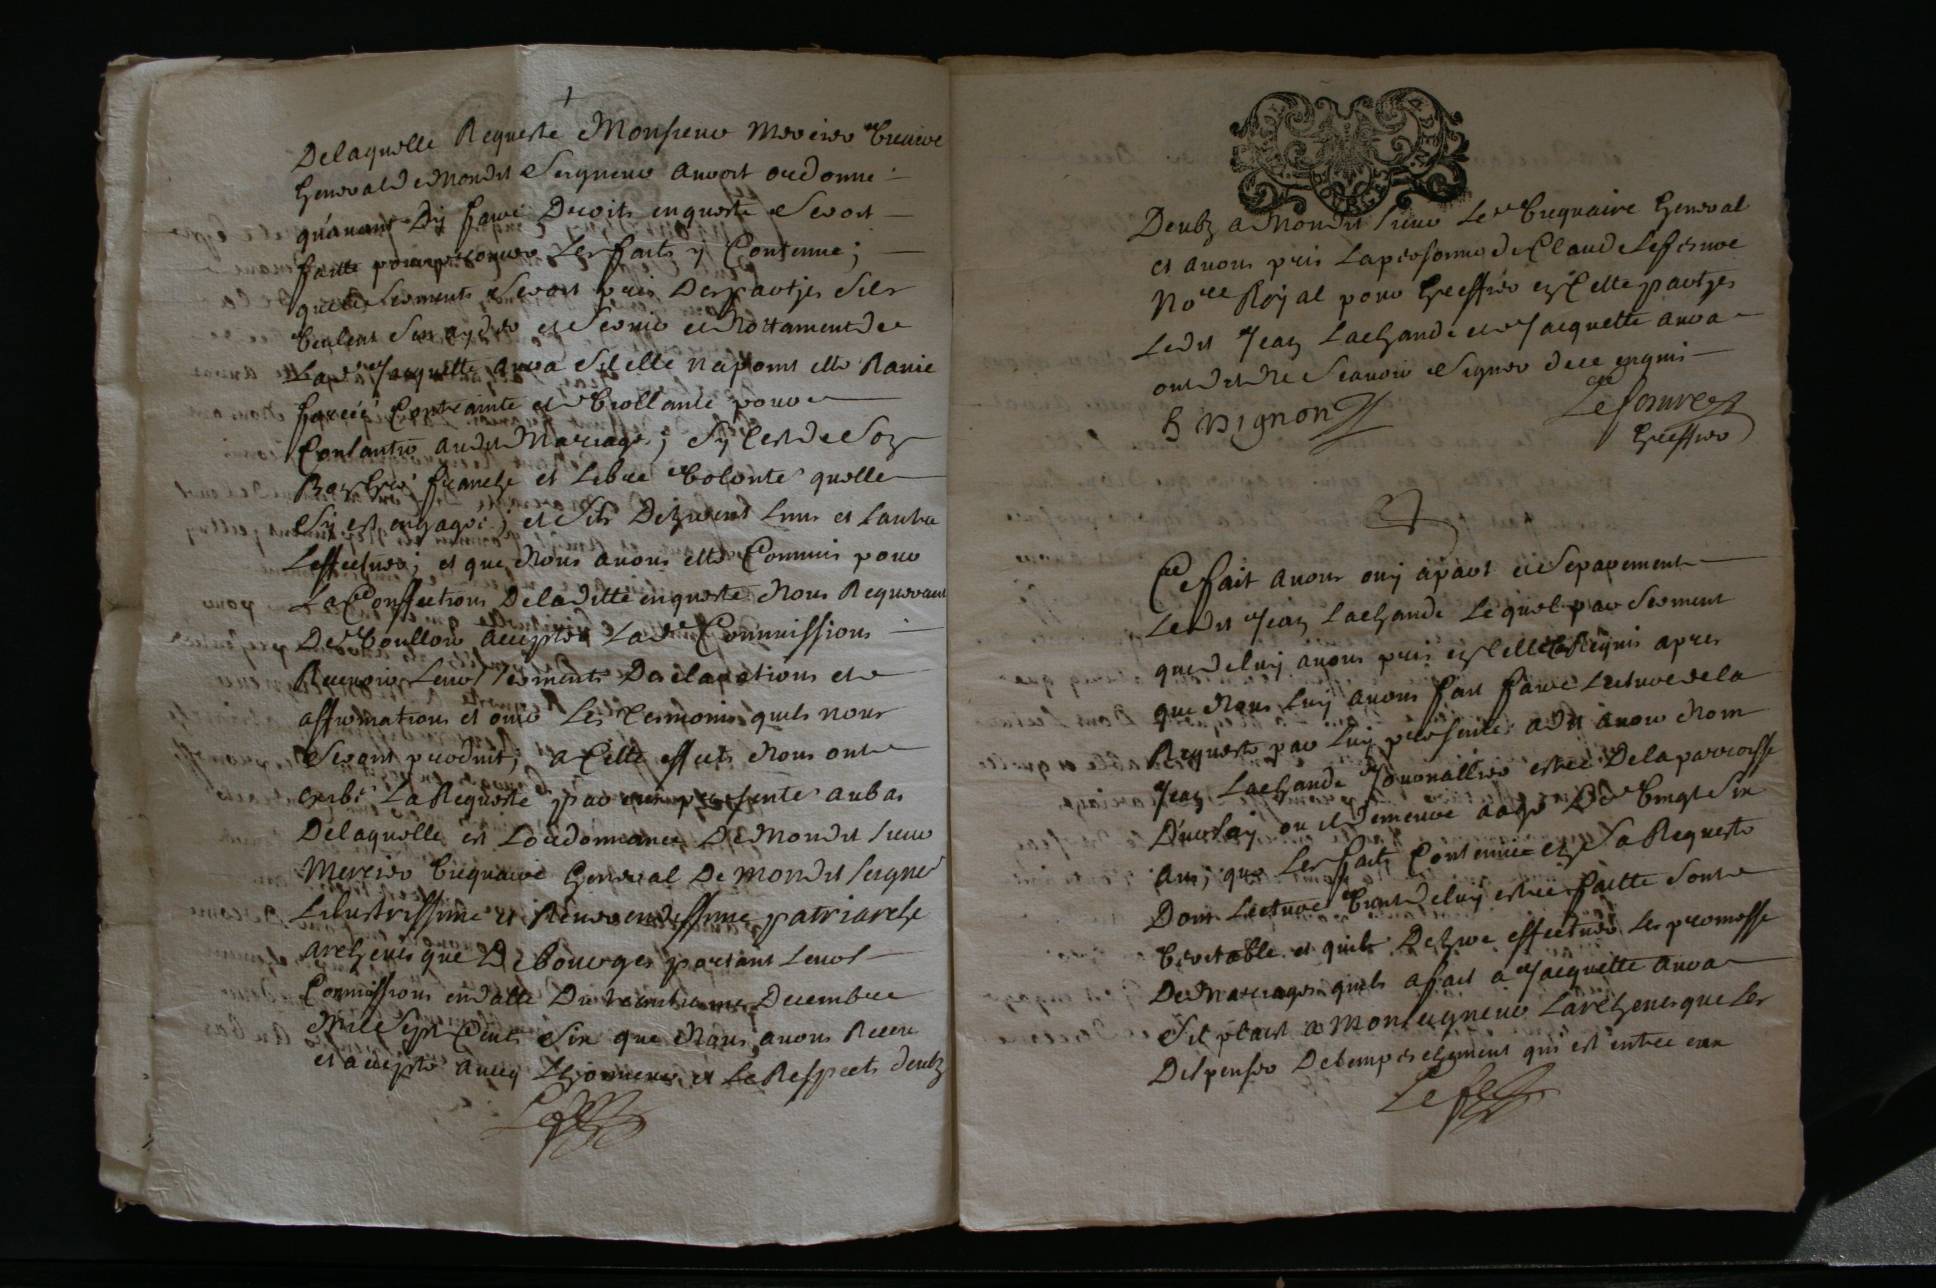 De laquelle Requeste Monsieur Mercier Vicaire
General de Mondit Seigneur auroit ordonné
qu'avant dy faire droits enqueste seroit
faitte pour prouver Les faits y Contenue;
que le serments seroit pris des partyes sils
veulent et nottament de
La de Jacquette auva sil elle na point esté Ravie
forcée Contrainte et viollante pour
Contanter audit Mariage; sy Cest de son
franche et Libre volonté quelle
sy est engagée; et sils Dezirent Luns et Lautre
Leffectuer; et que Nous avons esté Commis pour
La Confections De laditte enqueste Nous Requerant
De voulloir accepter La de Commissions
Recevoir Leur serments Declarations et
affirmations et ouir Les temoins quils nous
seront produit; a Cette effects Nous ont
exibé La Requeste par eux presenté au bas
De laquelle est Lordonnance De Mondit sieur
Mercier Vicquaire General De mondit seigneur
Lilustrissime et Reverendissime patriarche
archevesque De Bourges portant Leurs
Commissions en datte Du Decembre
Mil Sept Cents six que Nous avons Receu
et accepté avecq Lhonneur et Le Respects deubz
Lefe
Deubz a Mondit sieur Le Vicquaire General
et avons pris La personne de Claude Lefesvre
Nore Royal pour Greffier en Cette partyes
Ledit Jean Lachande et Jacquette auva
ont dit Ne scavoir signer de ce enquis
B Vignon
Lefesvre
Greffier
Ce fait avons ouy apart et separement
Ledit Jean Lachande Lequel par serment
que de luy avons pris en telle Requis apres
que Nous Luy avons fait faire Lecture de la
Requeste par Luy presenté a dit avoir Nom
Jean Lachande Journallier estre De la parroisse
ou il demeure aagé De Vingt six
ans, que Les faits Contenue en sa Requeste
Dont Lecture vient de luy estre faitte sont
veritable et quils Dezire effectuer Les promesse
De Mariages quils a fait a Jacquette auva
sil plaist a Monseigneur Larchevesque Les
Dispenser De Lempeschement qui est entre eux
Lefe